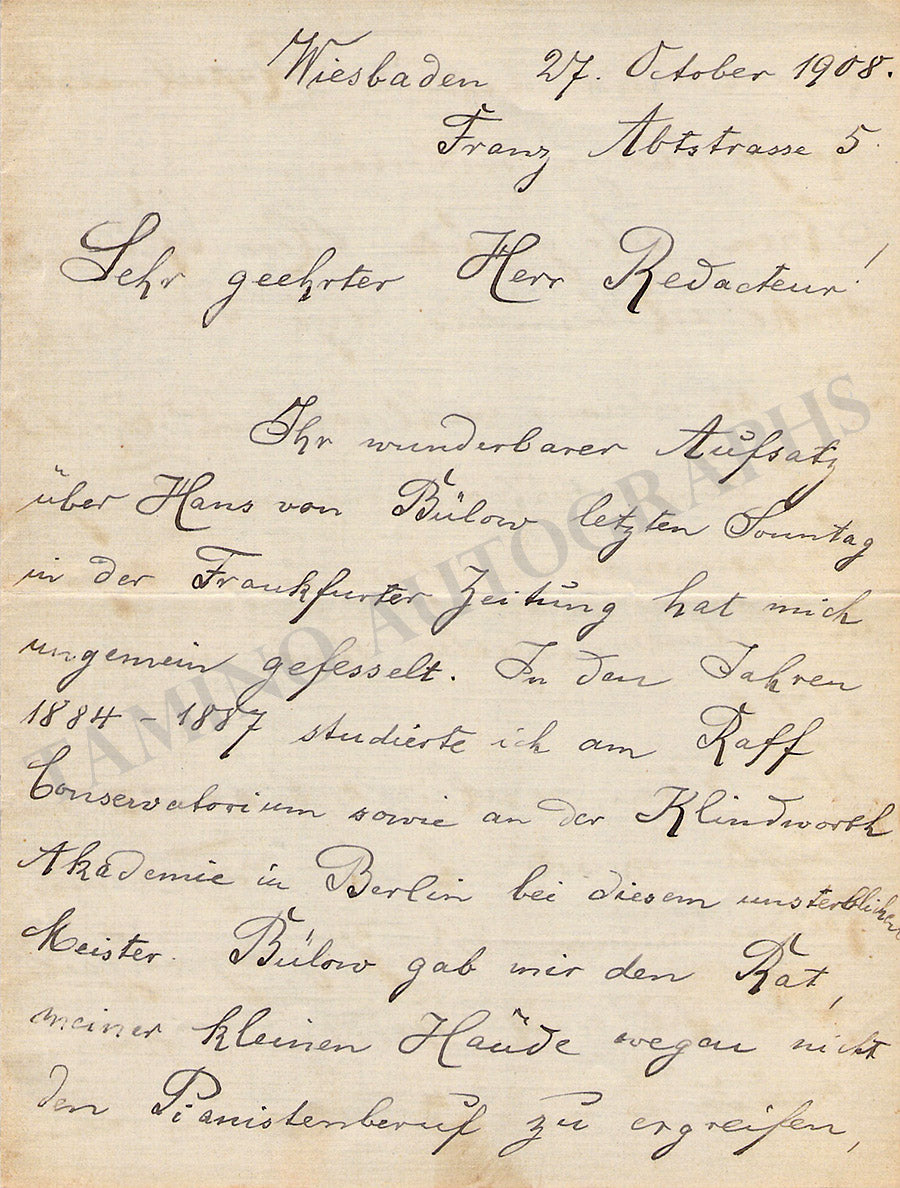 Wiesbaden 27. October 1908.
Franz Abtstrasse 5.
Sehr geehrter Herr Redacteur!
Ihr wunderbarer Aufsatz
über Hans von Bülow letzten Sonntag
in der Frankfurter Zeitung hat mich
ungemein gefesselt. In den Jahren
1884 - 1887 studierte ich am Raff
Conservatorium sowie an der Klindworth
Akademie in Berlin bei diesem unsterblichen
Meister. Bülow gab mir den Rat,
meiner kleinen Hände wegen nicht
den Pianistenberuf zu ergreifen,
TAMINO AUTOGRAPHS